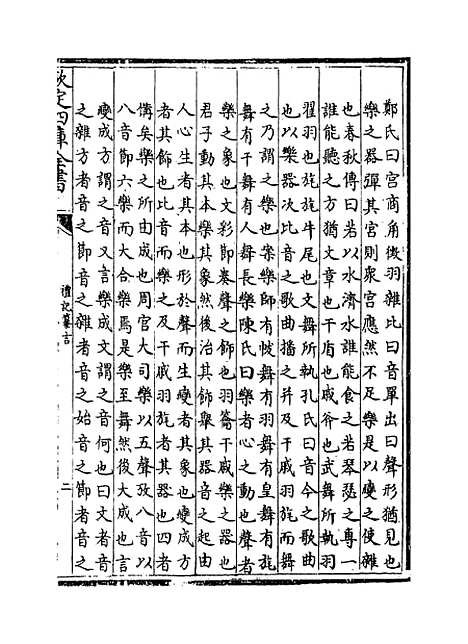 鄭氏曰宫商角徵羽雜比曰音單出曰聲形猶見也
樂之器彈其宫則衆宫應然不足樂是以變之使雜
也春秋傳曰若以水濟水誰能食之若琴瑟之專一
誰能聽之方猶文章也干盾也戚斧也武舞所執羽
翟羽也旄旄牛尾也文舞所執孔氏曰音今之歌曲
也以樂器次比音之歌曲播之并及干戚羽旄而舞
之乃謂之樂也案樂師有帗舞有羽舞有皇舞有旄
舞有干舞有人舞長樂陳氏曰樂者心之動也聲者
樂之象也文彩節奏聲之飾也羽籥干戚樂之器也
君子動其本樂其象然後治其飾舉其器音之起由
人心生者其本也形於聲而生變者其象也變成方
者其飾也比音而樂之及干戚羽旄者其器也四者
備矣樂之所由成也周官大司樂以五聲攷八音以
八音節六樂而大合樂焉是樂至舞然後大成也言
變成方謂之音又言聲成文謂之音何也曰文者音
之雜方者音之節音之雜者音之始音之節者音之
欽定四庫全書
禮記纂言
二